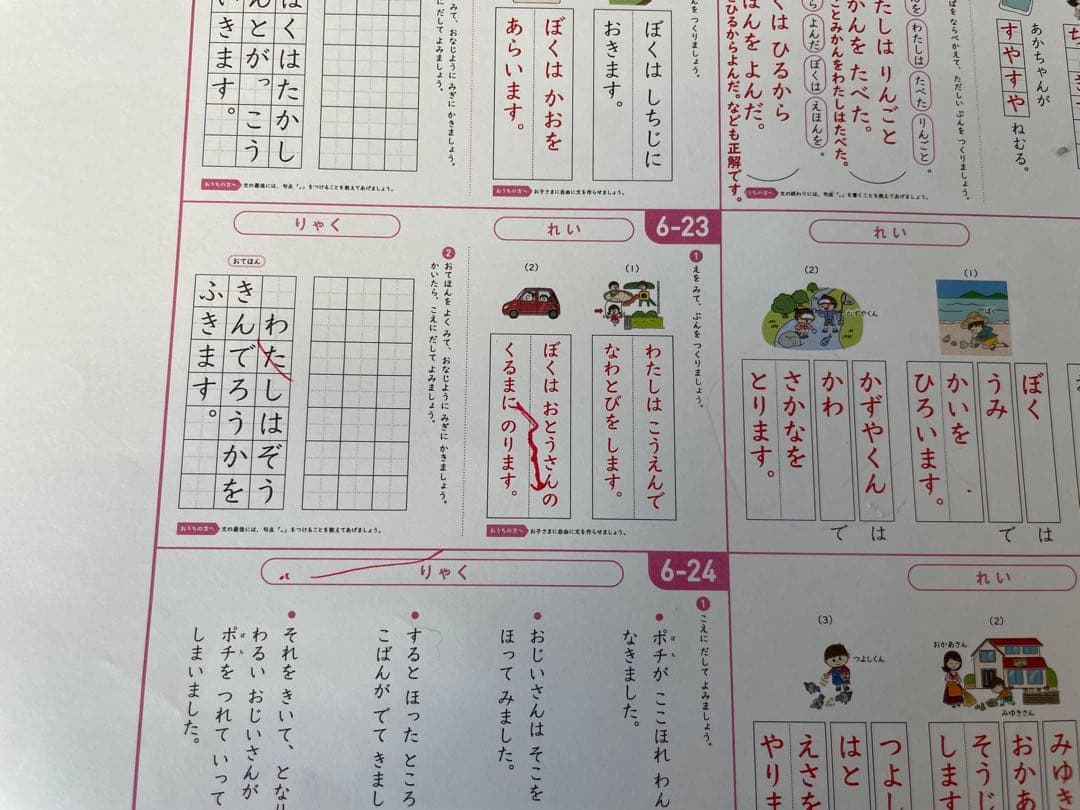 すやすや
あかちゃんが
ねむる。
ばを ならべかえて、ただしい ぶんを つくりましょう。
わたしは
たべた
りんごと
よんだ
ぼくは
えほんを
。
たしは りんごと
かんを たべた。
ことみかんをわたしはたべた。
くは ひるから
ほんを よんだ。
ひるからよんだ。なども正解です。
おうちの方へ 文の終わりには、句点「。」を書くことを教えてあげましょう。
んを つくりましょう。
ぼくは しちじに
おきます。
ぼくは かおを
あらいます。
おうちの方へ お子さまに自由に文を作らせましょう。
みて、おなじように みぎに かきましょう。
だして よみましょう。
はくはたかし
んとがっこう
いきます。
おうちの方へ 文の最後には、句点「。」をつけることを教えてあげましょう。
れい
(1)
ぼく
ぼく
は
うみ
で
かいを
ひろいます。
(2)
かずやくん
かずやくん
は
かわ
で
さかなを
とります。
6-23
れい
1 えを みて、ぶんを つくりましょう。
(1)
わたしは こうえんで
なわとびを します。
(2)
ぼくは おとうさんの
くるまに のります。
おうちの方へ お子さまに自由に文を作らせましょう。
りゃく
2 おてほんを よく みて、おなじように みぎに かきましょう。
かいたら、こえに だして よみましょう。
おてほん
わたしはぞう
きんでろうかを
ふきます。
おうちの方へ 文の最後には、句点「。」をつけることを教えてあげましょう。
れい
(2)
おかあさん
みゆきさん
みゆき
おかあ
そうじ
します
(3)
つよしくん
つよし
はと
えさを
やりま
6-24
りゃく
1 こえに だして よみましょう。
● ポチが ここほれ わん
ぽち
なきました。
● おじいさんは そこを
ほって みました。
● すると ほった ところ
こばんが でて きまし
● それを きいて、となり
わるい おじいさんが
ポチを つれて いって
ぽち
しまいました。